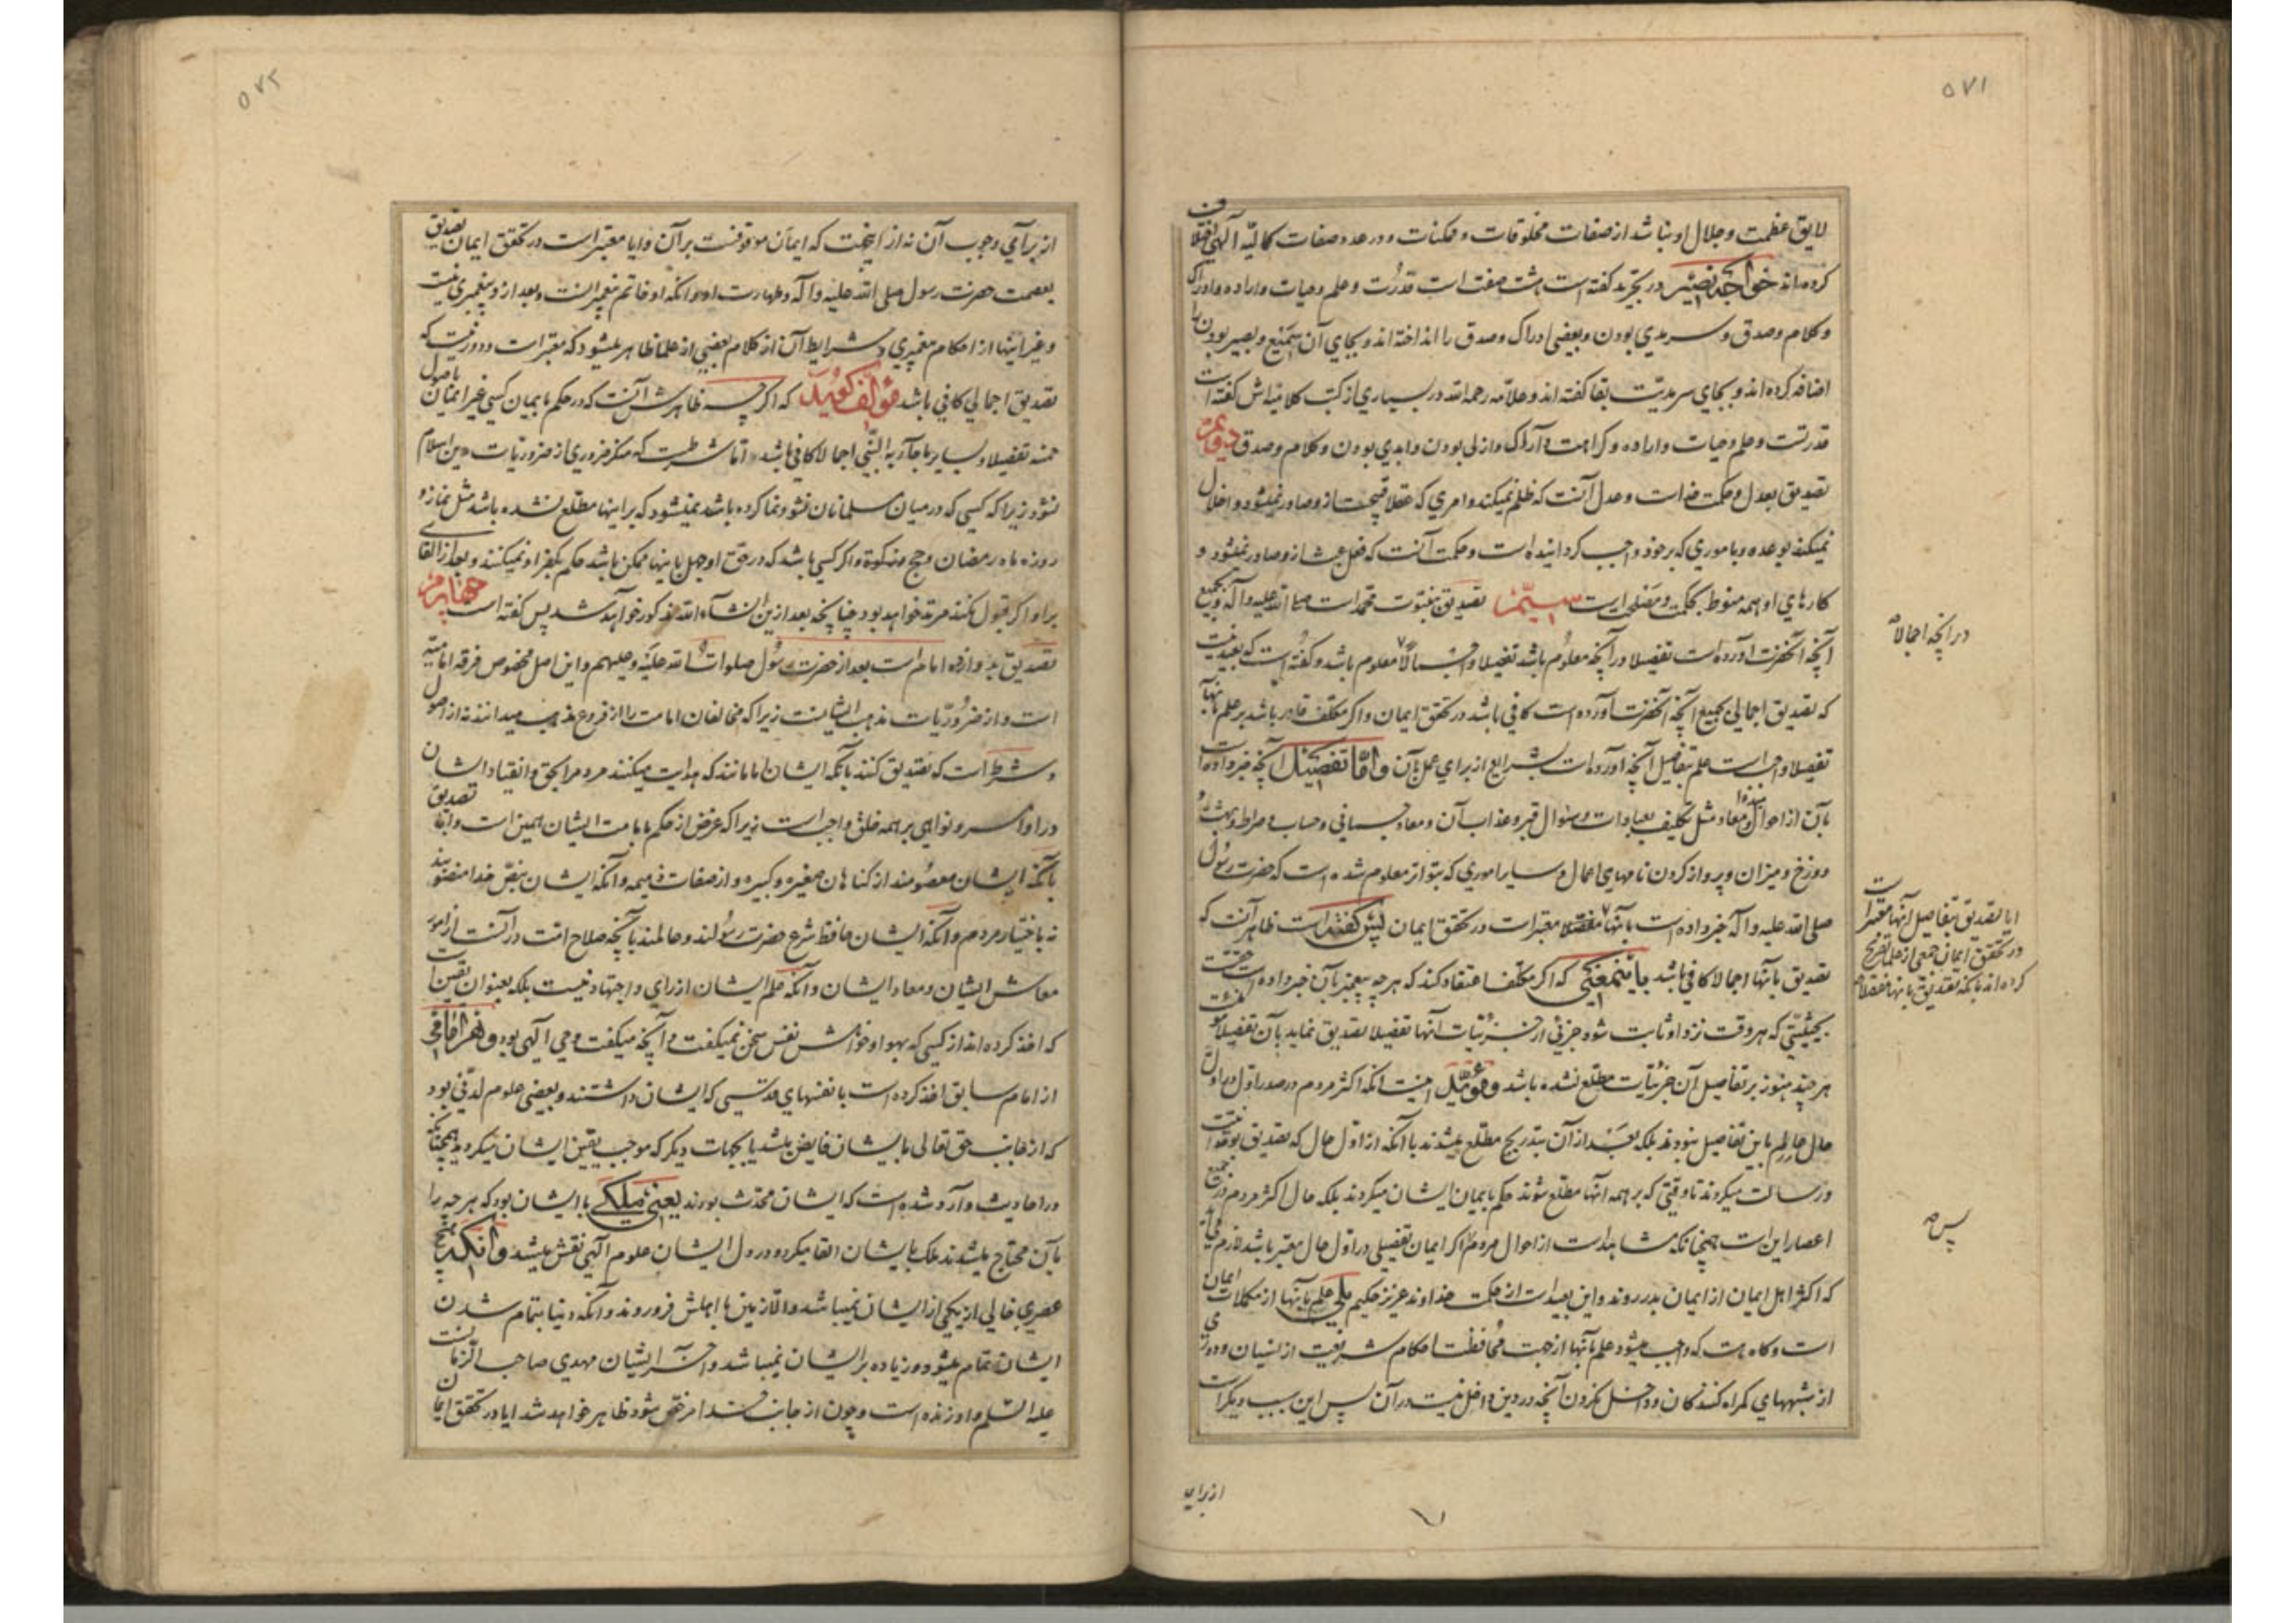 ۵۷۱
لایق عظمت و جلال او نباشد از صفات مخلوقات و ممکنات و در عدد صفات کمالیّه آلهی اختلاف
کرده اند خواجه نصیر در تجرید کفته است هشت صفت است قدرت و علم و حیات و اراده و ادراک
و کلام و صدق و سرمدي بودن و بعضی ادراک و صدق را انداخته اند و بجاي آن سمیع و بصیر بودن را
اضافه کرده اند و بجاي سرمدیّت بقا کفته اند و علاّمه رحمه الله در بسیاري از کتب کلامیه اش کفته است
قدرتست و علم و حیات و اراده و کراهت و ادراک و ازلی بودن و ابدي بودن و کلام و صدق دویم
تصدیق بعدل و حکمت خداست و عدل آنست که ظلم نمیکند و امري که عقلا قبیحست از و صادر نمیشود و اخلال
نمیکند بوعده و باموري که بر خود واجب کردانیده است و حکمت آنست که فعل عبث از و صادر نمیشود و
کارهاي او همه منوط بحکمت و مصلحت است سیّم تصدیق بنبوّت محمد است صلی الله علیه و آله و بجمیع
آنچه آنحضرت آورده است تفصیلا در آنچه معلوم باشد تفصیلا و اجمالاً معلوم باشد و کفته است که بعید نیست
در انچه اجمالا صح
که تصدیق اجمالی بجمیع آنچه آنحضرت آورده است کافی باشد در تحقق ایمان و اکر مکلف قادر باشد بر علم بانها
تفصیلا واجب است علم بتفاصیل آنچه آورده است بشرایع از براي عمل بآن و امّا تفصیل آنچه خبر داده است
بآن از احوال مبدء و معاد مثل تکلیف بعبادات و سؤال قبر و عذاب آن و معاد جسمانی و حساب و صراط و بهشت و
دوزخ و میزان و پرواز کردن نامهاي اعمال و سایر اموري که بتواتر معلوم شده است که حضرت رسول
صلی الله علیه و آله خبر داده است بانها مفصلا معتبر است در تحقق ایمان پس کفته است ظاهر آنست که
ایا تصدیق بتفاصیل انها معتبر است
در تحقق ایمان جمعی از علما تصریح
کرده اند بانکه تصدیق بانها مفصلا صح
تصدیق بانها اجمالا کافی باشد باینمعنی که اکر مکلف اعتقاد کند که هر چه پیغمبر بآن خبر داده است حقست
بحیثیّتی که هر وقت نزد او ثابت شود جزئی از جزئیات آنها تفصیلا تصدیق نماید بآن تفصیلا مؤمنست
هر چند هنوز بر تفاصیل آن جزئیات مطلع نشده باشد و مؤیّد اینست انکه اکثر مردم در صدر اوّل در اول
حال عالم باین تفاصیل نبودند بلکه بعد از آن بتدریج مطلع میشدند با آنکه از اوّل حال که تصدیق بوحدانیت
و رسالت میکردند تا وقتی که بر همه انها مطلع شوند حکم بایمان ایشان میکردند بلکه حال اکثر مردم در جمیع
اعصار این است چنانکه مشاهد است از احوال مردم اکر ایمان تفصیلی در اول حال معتبر باشد لازم می آید
پس صح
که اکثر اهل ایمان از ایمان بدر روند و این بعید است از حکمت خداوند عزیز حکیم بلی علم بانها از مکملات ایمان
است و کاه هست که واجب میشود علم بآنها از جهت محافظت احکام شریعت از نسیان و دوري
از شبههاي کمراه کنندکان و داخل نکردن آنچه در دین داخل نیست در آن پس این سبب دیکر است
از براي
۵۷۲
از براي وجوب آن نه از اینجهت که ایمان موقوفست بر آن و ایا معتبر است در تحقق ایمان تصدیق
بعصمت حضرت رسول صلی الله علیه و آله و طهارت او و انکه او خاتم پیغمبرانست و بعد از و پیغمبري نیست
و غیر اینها از احکام پیغمبري و شرایط آن از کلام بعضی از علما ظاهر میشود که معتبر است و دور نیست که
تصدیق اجمالی کافی باشد مؤلف کوید که اکر چه ظاهرش آنست که در حکم بایمان کسی غیر ایمان باصول
خمسه تفصیلا و بسایر ما جآء به النّبی اجمالا کافی باشد اما شرطست که منکر ضروري از ضروریات دین اسلام
نشود زیرا که کسی که در میان مسلمانان نشو و نما کرده باشد نمیشود که بر اینها مطلع نشده باشد مثل نماز و
روزه ماه رمضان و حج و زکوة و اکر کسی باشد که در حق او جهل باینها ممکن باشد حکم بکفر او نمیکنند و بعد از القاي
بر او اکر قبول نکند مرتد خواهد بود چنانچه بعد ازین انشآء الله مذکور خواهد شد پس کفته است چهارم
تصدیق بدوازده امام است بعد از حضرت رسول صلوات الله علیه و علیهم و این اصل مخصوص فرقه امامیّه
است و از ضروریّات مذهب ایشانست زیرا که مخالفان امامت را از فروع مذهب میدانند نه از اصول
و شرط است که تصدیق کنند بآنکه ایشان امامانند که هدایت میکنند مردم را بحق و انقیاد ایشان
در اوامر و نواهی بر همه خلق واجب است زیرا که غرض از حکم بامامت ایشان همین است و امّا تصدیق
بآنکه ایشان معصومند از کناهان صغیره و کبیره و از صفات ذمیمه و آنکه ایشان بنصّ خدا منصوبند
نه باختیار مردم و آنکه ایشان حافظ شرع حضرت رسولند و عالمند بآنچه صلاح امّت در آنست از امور
معاش ایشان و معاد ایشان و آنکه علم ایشان از راي و اجتهاد نیست بلکه بعنوان یقین است
که اخذ کرده اند از کسی که بهوا و خواهش نفس سخن نمیکفت و آنچه میکفت وحی آلهی بود و هر امامی
از امام سابق اخذ کرده است با نفسهاي قدسی که ایشان داشتند و بعضی علوم لدنّی بود
که از جانب حق تعالی بایشان فایض میشد یا بجهات دیکر که موجب یقین ایشان میکردید همچنانکه
در احادیث وارد شده است که ایشان محدّث بودند یعنی ملکی با ایشان بود که هر چه را
بآن محتاج میشدند ملک بایشان القا میکرد و در دل ایشان علوم آلهی نقش میشد و آنکه هیچ
عصري خالی از یکی از ایشان نمیباشد و الا زمین با اهلش فرو روند و آنکه دنیا بتمام شدن
ایشان تمام میشود و زیاده بر ایشان نمیباشد و آخر ایشان مهدي صاحب الزمانست
علیه السّلم و او زنده است و چون از جانب خدا مرخص شود ظاهر خواهد شد ایا در تحقق ایمان